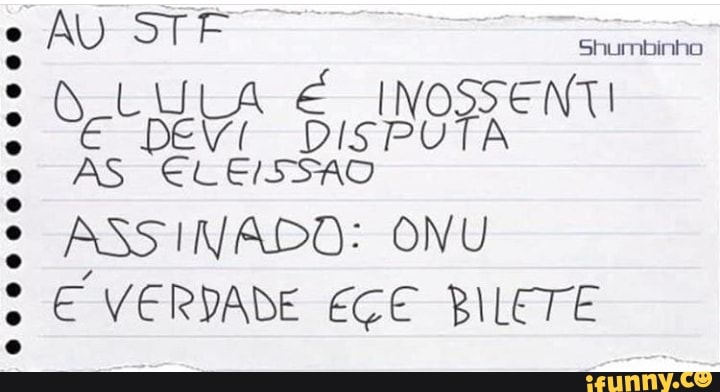 AU STF
Shumbinho
O LULA É INOSSENTI
E DEVI DISPUTA
AS ELEISSAO
ASSINADO: ONU
É VERDADE EÇE BILETE
ifunny.co